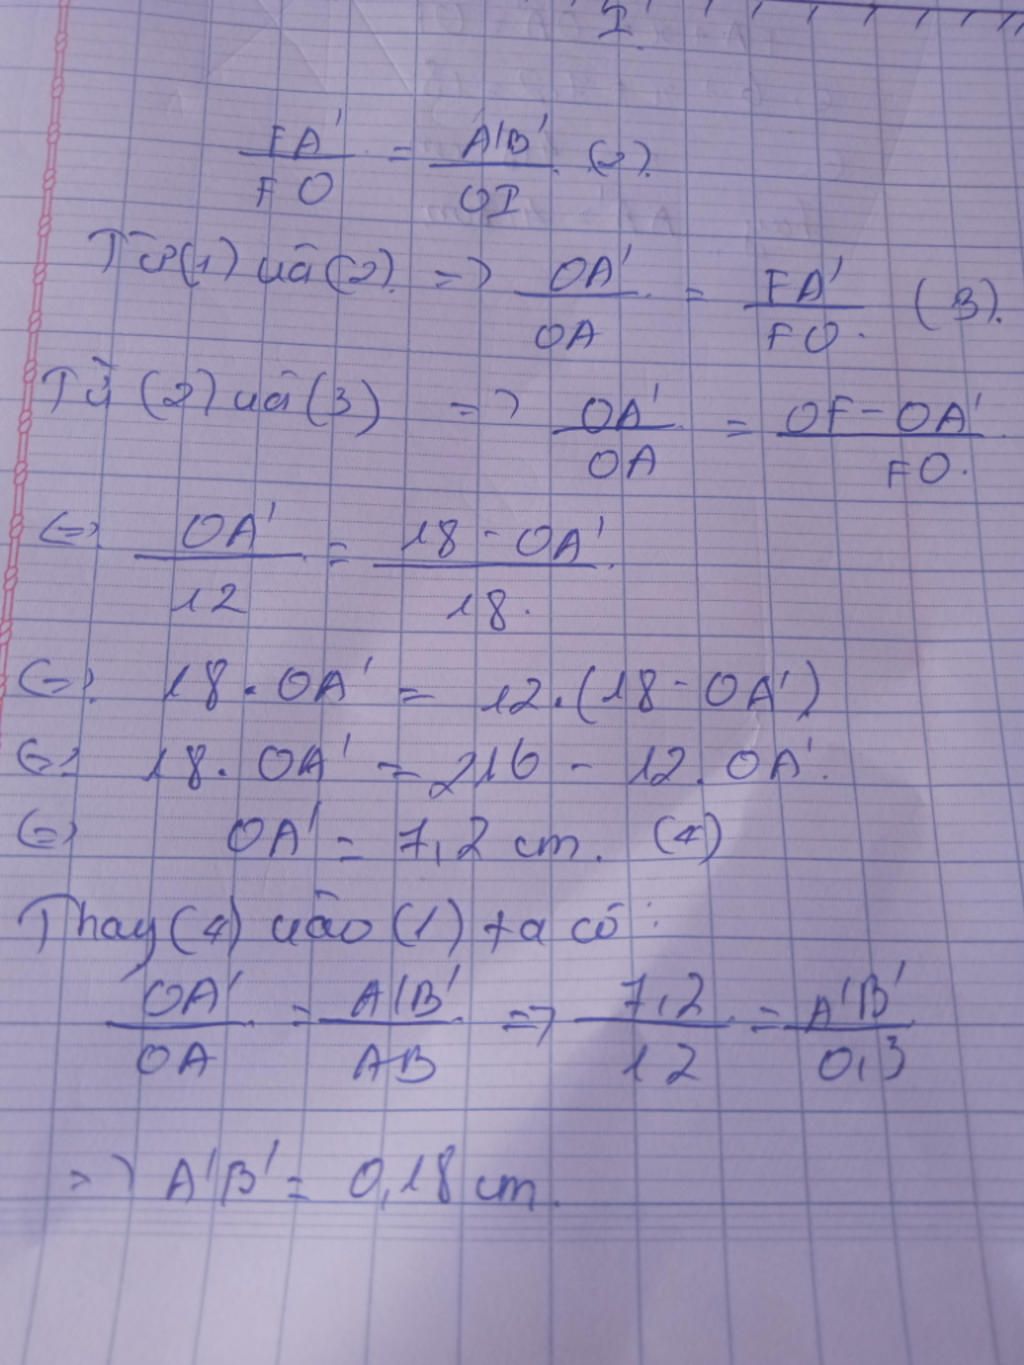 I
FA'/FO = A'B'/OI (2).
Từ (1) và (2) => OA'/OA = FA'/FO. (3).
Từ (2) và (3) => OA'/OA = OF - OA'/FO.
<=> OA'/12 = 18 - OA'/18.
<=> 18. OA' = 12.(18 - OA')
<=> 18. OA' = 216 - 12. OA'.
<=> OA' = 7,2 cm. (4)
Thay (4) vào (1) ta có:
OA'/OA = A'B'/AB => 7,2/12 = A'B'/0,3
=> A'B' = 0,18 cm.